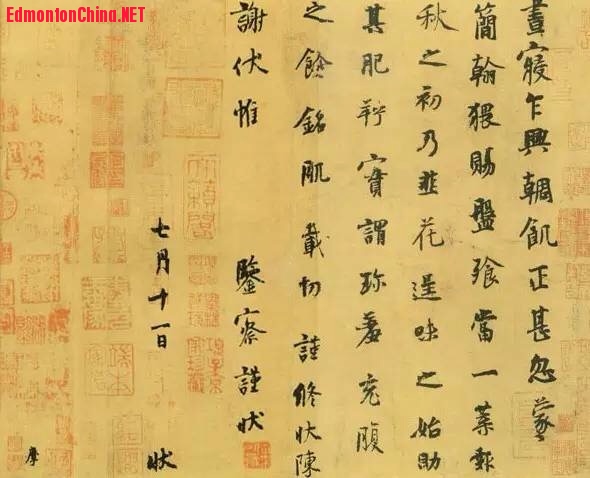 EdmontonChina.NET
晝寢乍興輖飢正甚忽蒙
簡翰猥賜盤飧當一葉報
秋之初乃韭花逞味之始助
其肥羜實謂珍羞充腹
之餘銘肌載切謹修狀陳
謝伏惟 鑒察謹狀
七月十一日 狀